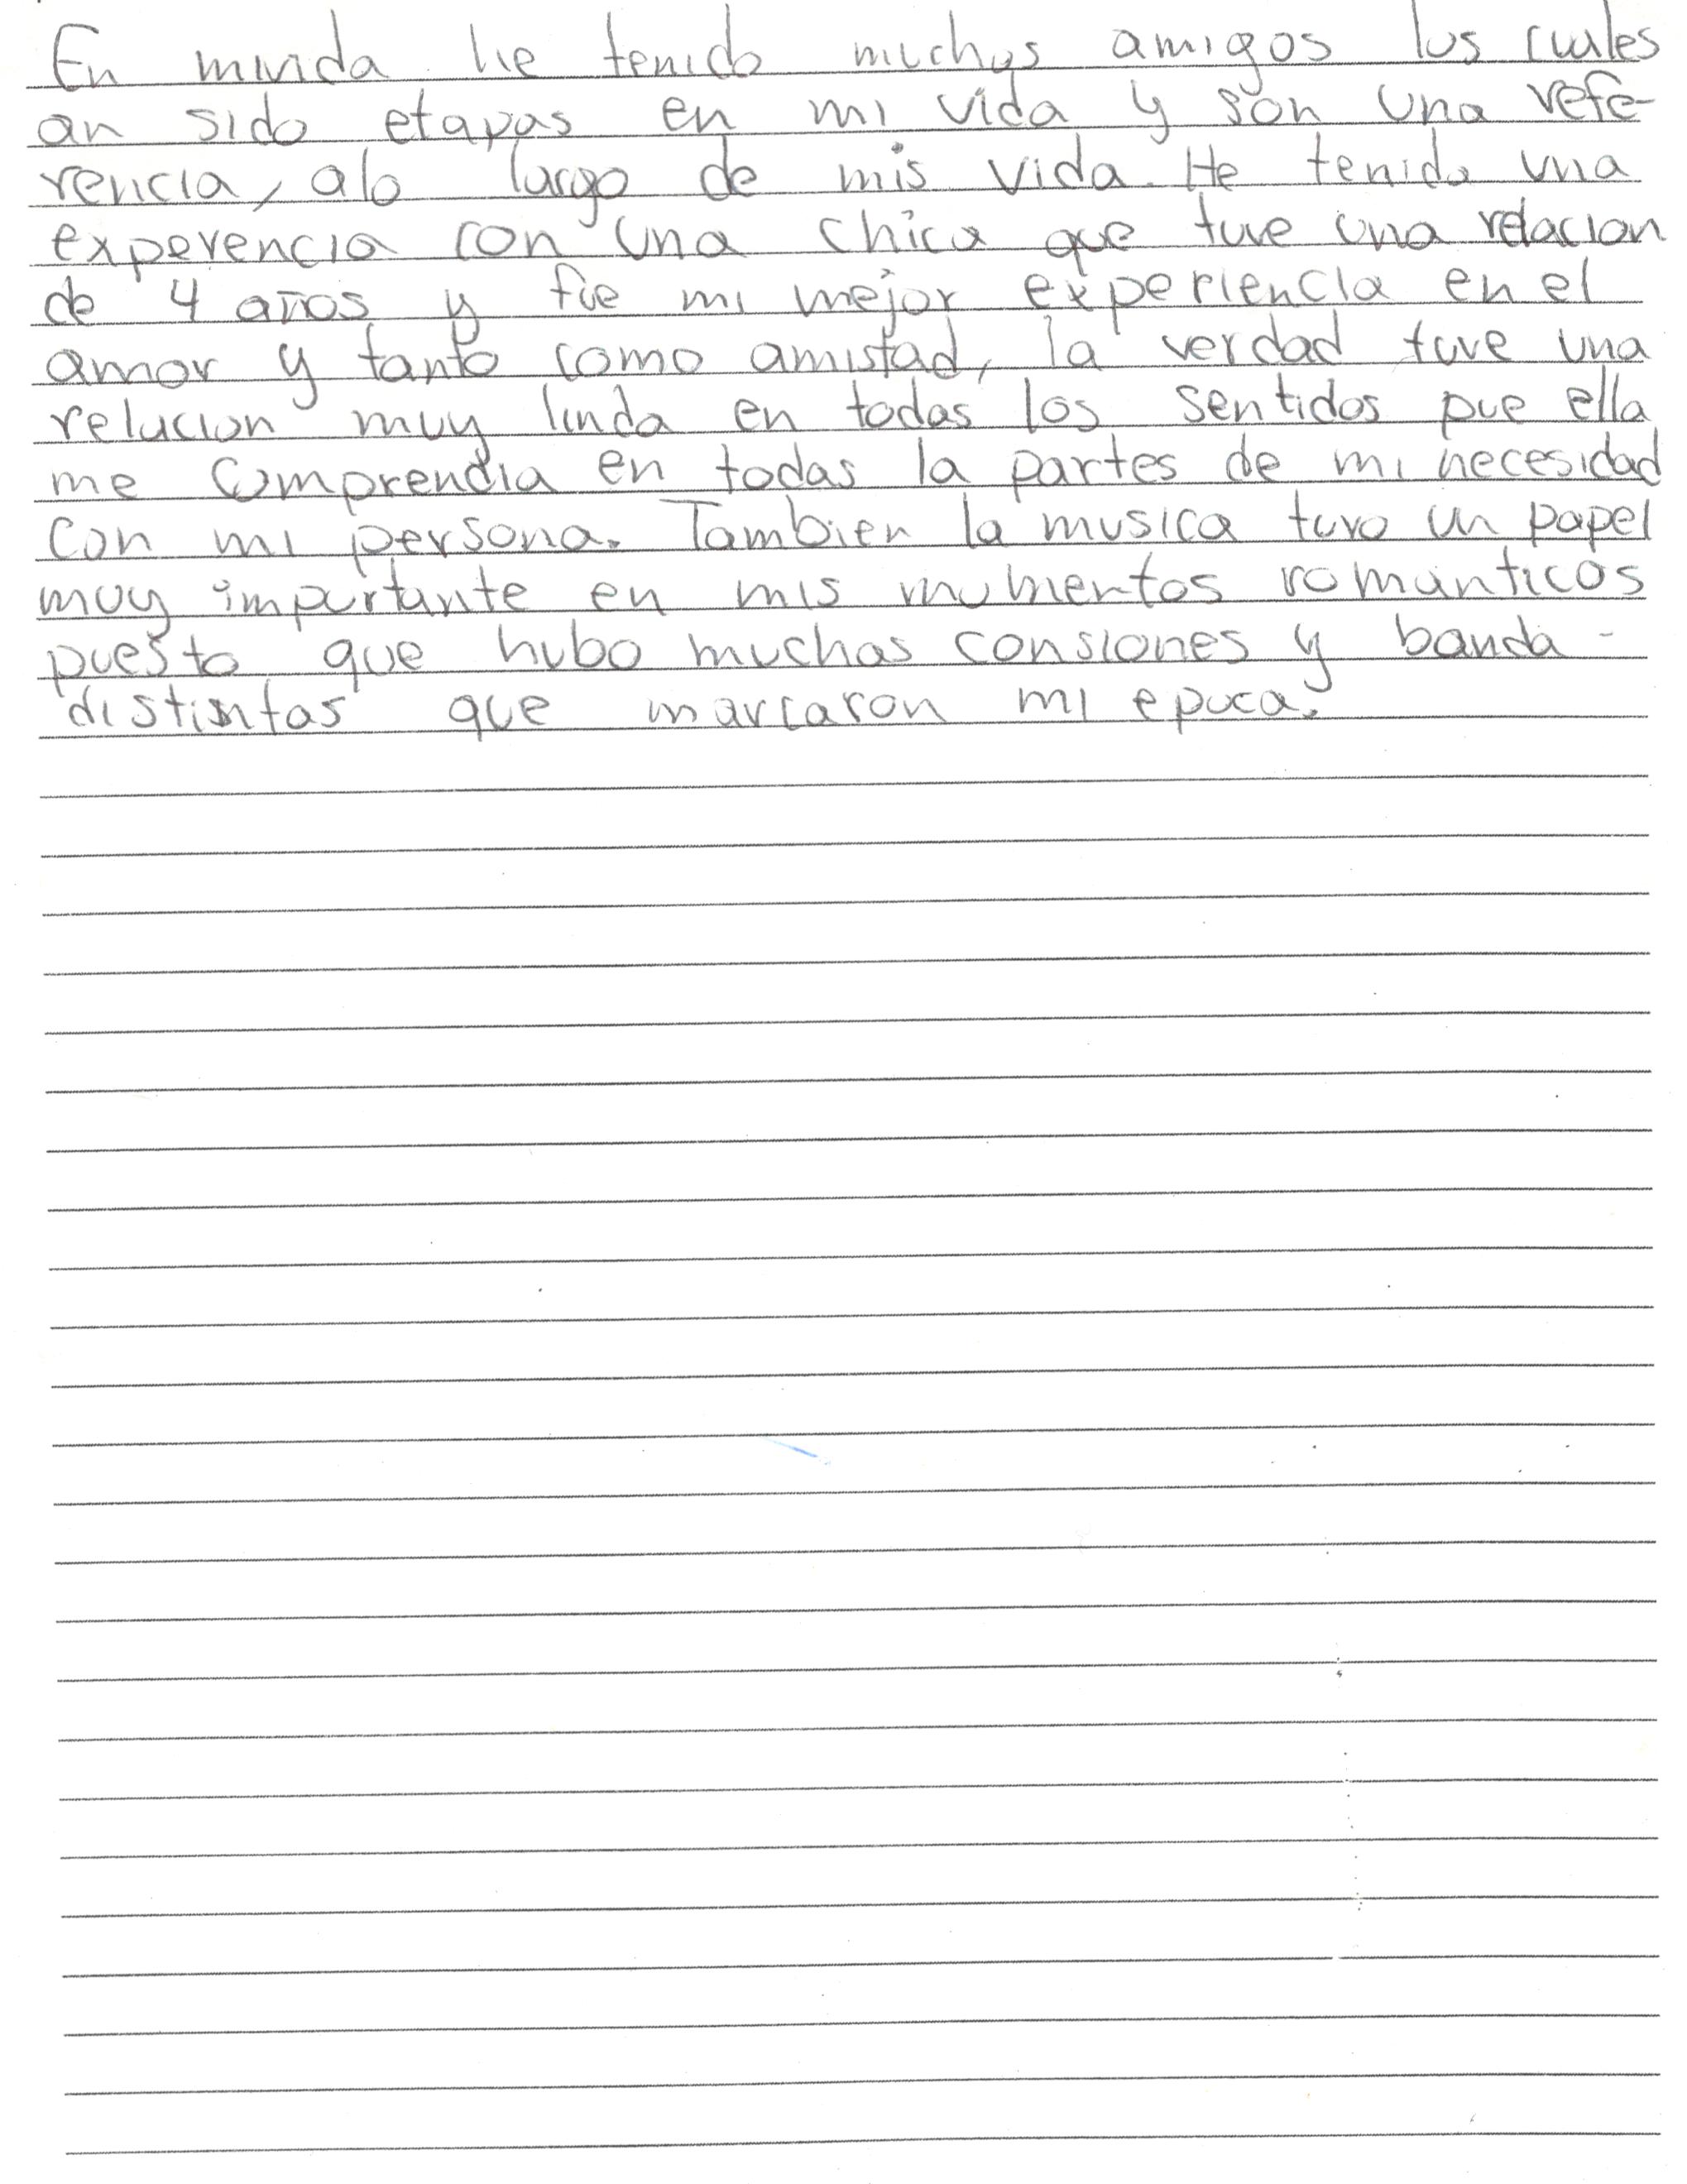 En mivida he tenido muchos amigos los cuales
an sido etapas en mi vida y son una refe-
rencia, alo largo de mis vida. He tenido una
experencia con una chica que tuve una relacion
de 4 años y fue mi mejor experiencia en el
amor y tanto como amistad, la verdad tuve una
relacion muy linda en todas los sentidos pue ella
me comprendia en todas la partes de mi necesidad
con mi persona. Tambien la musica tuvo un papel
muy importante en mis momentos romanticos
puesto que hubo muchas consiones y banda -
distintas que marcaron mi epoca.